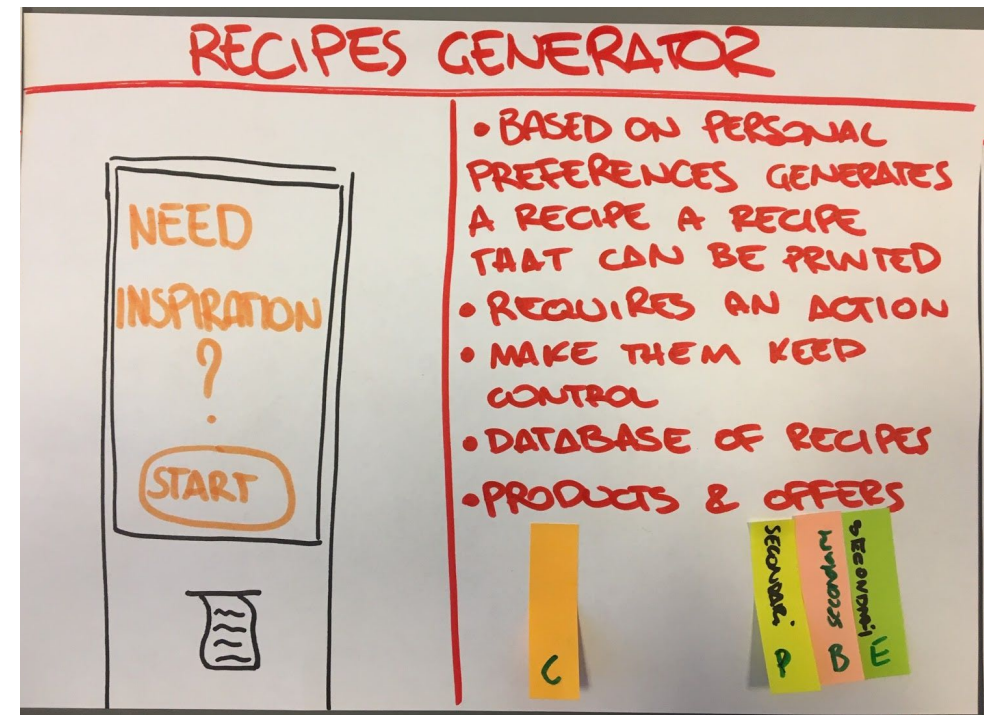 RECIPES GENERATOR
NEED
INSPIRATION
?
START
• BASED ON PERSONAL
PREFERENCES GENERATES
A RECIPE A RECIPE
THAT CAN BE PRINTED
• REQUIRES AN ACTION
• MAKE THEM KEEP
CONTROL
• DATABASE OF RECIPES
• PRODUCTS & OFFERS
C
P
B
E